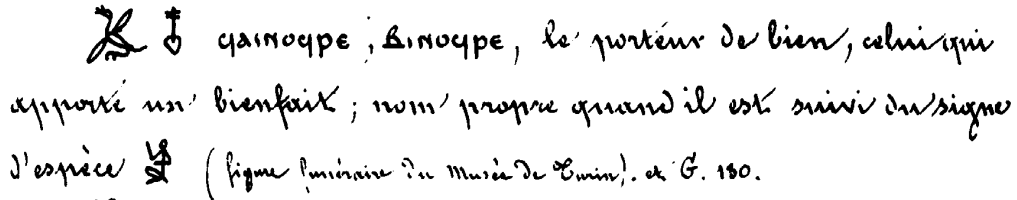 ϥⲁⲓⲛⲟϥⲣⲉ, ϥⲓⲛⲟϥⲣⲉ, le porteur de bien, celui qui
apporte un bienfait; nom propre quand il est suivi du signe
d'espèce (figure funéraire du Musée de Turin). et G. 130.